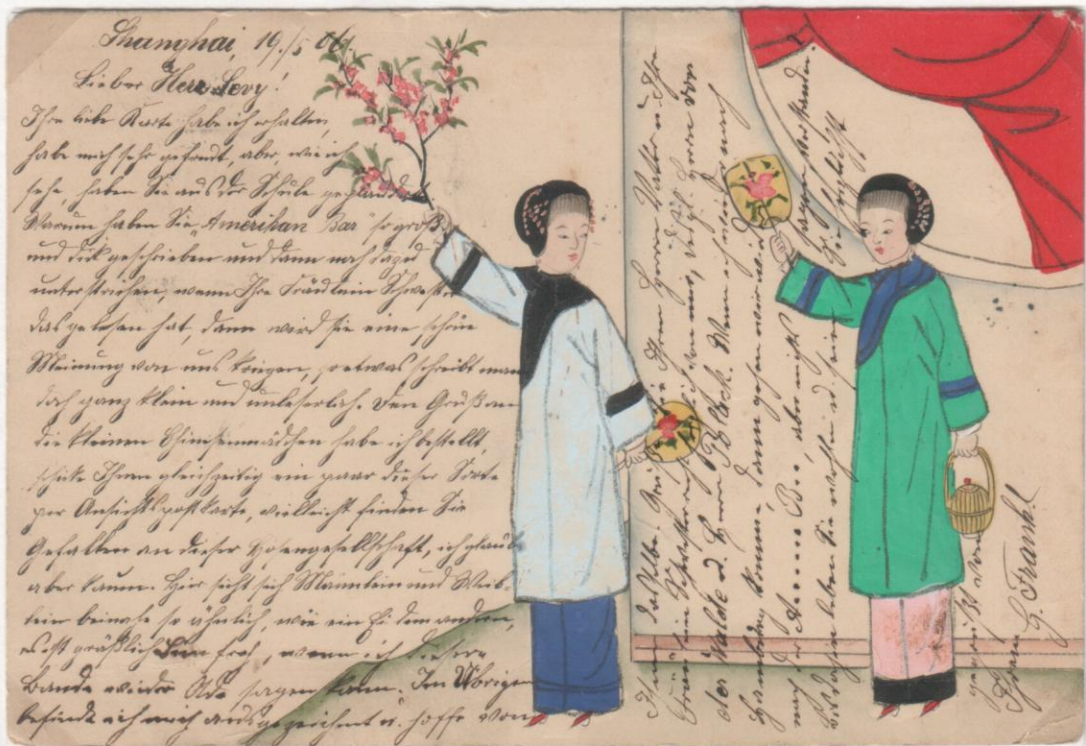 Shanghai, 19./5 06.
Lieber Herr Levy!
Ihre liebe Karte habe ich erhalten,
habe mich sehr gefreut, aber, wie ich
sehe, haben Sie aus der Schule geplaudert
Warum haben Sie „Amerikan Bar" so groß
und dick geschrieben und dann noch dazu
unterstrichen, wenn Ihre Fräulein Schwester
das gelesen hat, dann wird sie eine schöne
Meinung von uns kriegen, so etwas schreibt man
doch ganz klein und unleserlich. Den Gruß an
die kleinen Chinesenmädchen habe ich bestellt,
schicke Ihnen gleichzeitig ein paar dieser Sorte
per Ansichtspostkarte, vielleicht finden Sie
Gefallen an dieser Hosengesellschaft, ich glaube
aber kaum. Hier sieht sich Männlein und Weib-
lein beinahe so ähnlich, wie ein Ei dem andern,
es ist gräßlich. Bin froh, wenn ich dieser
Bande wieder Ade sagen kann. Im Übrigen
befinde ich mich ausgezeichnet u. hoffe von
Ihnen dasselbe. Ihrem Herrn Vater u. Ihre
Fräulein Schwester von mir, Herrn von
der Walde u. Herrn Block. Wenn ich wieder nach
Hamburg komme, dann gehen wir wieder
nach der A...... B.., aber nicht
bis dahin leben Sie wohl und seien Sie herzlichst
gegrüßt von
Ihrem G. Frankl